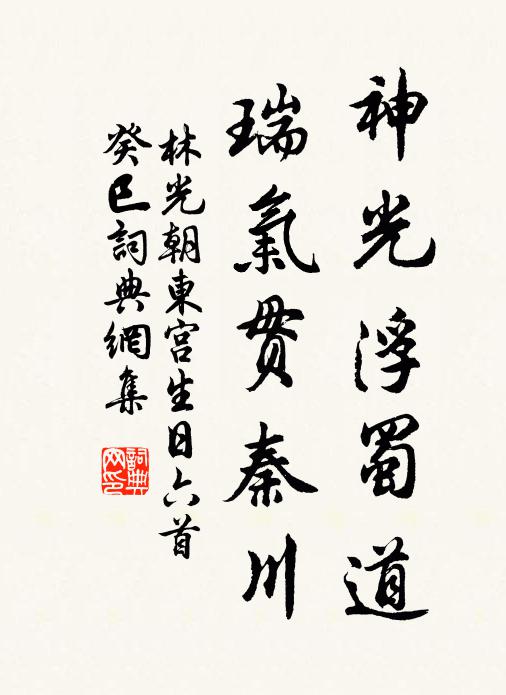 神光浮蜀道
瑞氣貫秦川
林光朝東宮生日六首
癸巳詞典網集
詞典网印